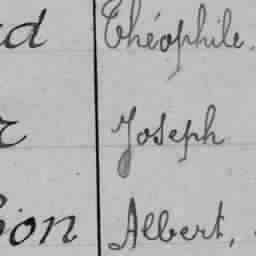 Théophile.
Joseph
Albert,